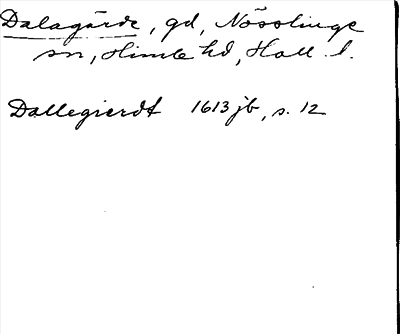 Dalagärde, gd, Nösslinge
sn, Himle hd, Hall. l.
Dallegierdt 1613 jb, s. 12